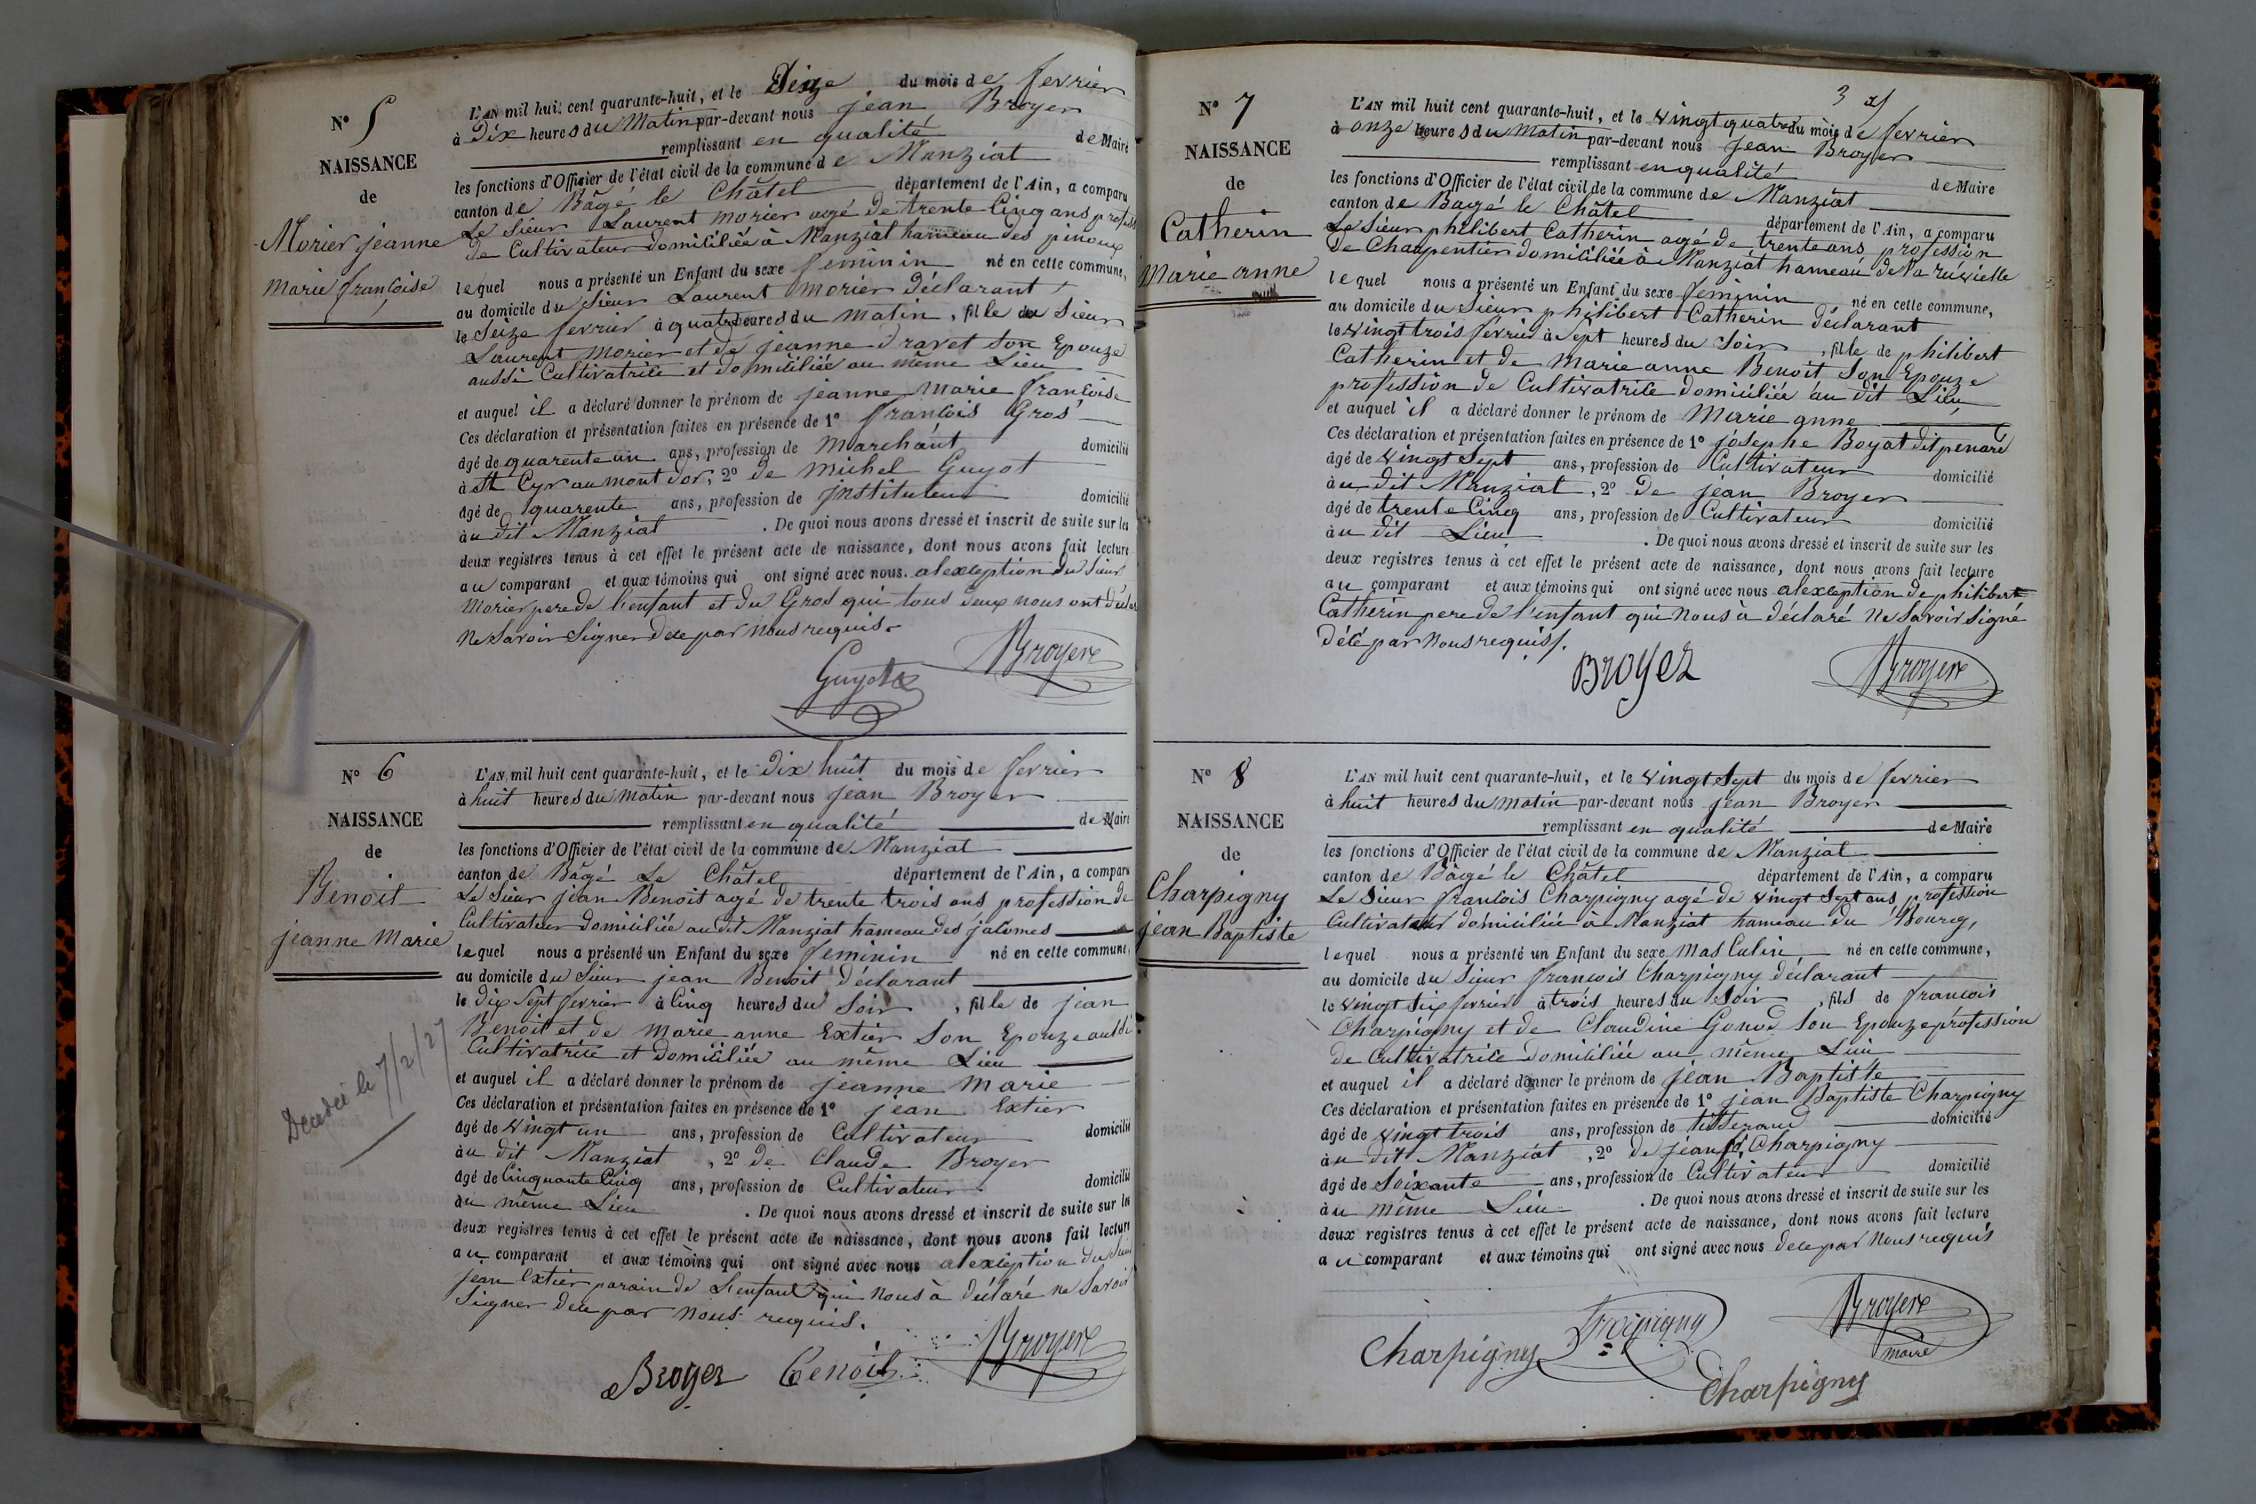 N° 5
NAISSANCE
de
Morier jeanne
marie françoise
L'AN mil huit cent quarante-huit, et le Seize du mois de fevrier
à Dix heures du Matin par-devant nous jean Broyer
remplissant en qualité de Maire
les fonctions d'Officier de l'état civil de la commune de Manziat
canton de Bâgé le Châtel département de l'Ain, a comparu
Le Sieur Laurent morier agé de trente Cinq ans profession
de Cultivateur domiciliée à Manziat hameau des pinoux
lequel nous a présenté un Enfant du sexe feminin né en cette commune,
au domicile du Sieur Laurent morier déclarant,
le Seize fevrier à quatre heures du matin, fille du Sieur
Laurent morier et de jeanne dravet son Epouze
aussi Cultivatrice et domiciliée au même Lieu
et auquel il a déclaré donner le prénom de jeanne marie françoise
Ces déclaration et présentation faites en présence de 1° francois Gros
âgé de quarente un ans, profession de Marchant domicilié
à St Cyr au mont dor, 2° de michel Guyot
âgé de quarente ans, profession de jnstituteur domicilié
àu dit Manziat . De quoi nous avons dressé et inscrit de suite sur les
deux registres tenus à cet effet le présent acte de naissance, dont nous avons fait lecture
au comparant et aux témoins qui ont signé avec nous. alexception du Sieur
Morier pere de l'enfant et du Gros qui tous deux nous ont déclaré
Ne Savoir Signer dece par nous requis.
Guyot Broyer
N° 6
NAISSANCE
de
Benoit
jeanne Marie
Decedée le 7/2/27
L'AN mil huit cent quarante-huit, et le dix huit du mois de fevrier
à huit heures du Matin par-devant nous jean Broyer
remplissant en qualité de Maire
les fonctions d'Officier de l'état civil de la commune de Manziat
canton de Bâgé Le Châtel département de l'Ain, a comparu
Le Sieur jean Benoit agé de trente trois ans profession de
Cultivateur domiciliée au dit Manziat hameau des jalomes
lequel nous a présenté un Enfant du sexe feminin né en cette commune,
au domicile du Sieur jean Benoit déclarant
le dix Sept fevrier à Cinq heures du Soir, fille de jean
Benoit et de marie anne Extier Son Epouze aussi
Cultivatrice et domiciliée au même Lieu
et auquel il a déclaré donner le prénom de jeanne marie
Ces déclaration et présentation faites en présence de 1° jean Extier
âgé de vingt un ans, profession de Cultivateur domicilié
àu dit Manziat, 2° de Claude Broyer
âgé de Cinquante Cinq ans, profession de Cultivateur domicilié
àu même Lieu . De quoi nous avons dressé et inscrit de suite sur les
deux registres tenus à cet effet le présent acte de naissance, dont nous avons fait lecture
au comparant et aux témoins qui ont signé avec nous alexception du Sieur
jean Extier parain de L'enfant qui nous à déclaré ne Savoir
Signer dece par nous requis.
Broyer Benoit Broyer
3
N° 7
NAISSANCE
de
Catherin
marie anne
L'AN mil huit cent quarante-huit, et le vingt quatre du mois de fevrier
à onze heures du Matin par-devant nous jean Broyer
remplissant en qualité de Maire
les fonctions d'Officier de l'état civil de la commune de Manziat
canton de Bagé le Châtel département de l'Ain, a comparu
Le Sieur philibert Catherin agé de trente ans profession
de Charpentier domiciliée à Manziat hameau de la
lequel nous a présenté un Enfant du sexe feminin né en cette commune,
au domicile du Sieur philibert Catherin déclarant
le vingt trois fevrier à Sept heures du Soir, fille de philibert
Catherin et de marie anne Benoit Son Epouze
profession de Cultivatrice domiciliée au dit Lieu
et auquel il a déclaré donner le prénom de marie anne
Ces déclaration et présentation faites en présence de 1° josephe Boyat dit penaré
âgé de vingt Sept ans, profession de Cultivateur domicilié
àu dit Manziat, 2° de jean Broyer
âgé de trente Cinq ans, profession de Cultivateur domicilié
àu dit Lieu . De quoi nous avons dressé et inscrit de suite sur les
deux registres tenus à cet effet le présent acte de naissance, dont nous avons fait lecture
au comparant et aux témoins qui ont signé avec nous alexception de philibert
Catherin pere de l'enfant qui nous à déclaré ne Savoir signé
décé par nous requis.
Broyer Broyer
N° 8
NAISSANCE
de
Charpigny
jean Baptiste
L'AN mil huit cent quarante-huit, et le vingt Sept du mois de fevrier
à huit heures du matin par-devant nous jean Broyer
remplissant en qualité de Maire
les fonctions d'Officier de l'état civil de la commune de Manziat
canton de Bâgé le Châtel département de l'Ain, a comparu
Le Sieur francois Charpigny agé de vingt Sept ans profession
Cultivateur domiciliée à Manziat hameau du Bourg,
lequel nous a présenté un Enfant du sexe masculin né en cette commune,
au domicile du Sieur francois Charpigny déclarant
le vingt Six fevrier à trois heures du Soir, fils de francois
Charpigny et de Claudine Gonod Son Epouze profession
de Cultivatrice domiciliée au même Lieu
et auquel il a déclaré donner le prénom de jean Baptiste
Ces déclaration et présentation faites en présence de 1° jean Baptiste Charpigny
âgé de vingt trois ans, profession de tisserand domicilié
àu dit Manziat, 2° de jean Charpigny
âgé de Soixante ans, profession de Cultivateur domicilié
àu même Lieu . De quoi nous avons dressé et inscrit de suite sur les
deux registres tenus à cet effet le présent acte de naissance, dont nous avons fait lecture
au comparant et aux témoins qui ont signé avec nous dece par nous requis
Charpigny Broyer
maire
Charpigny